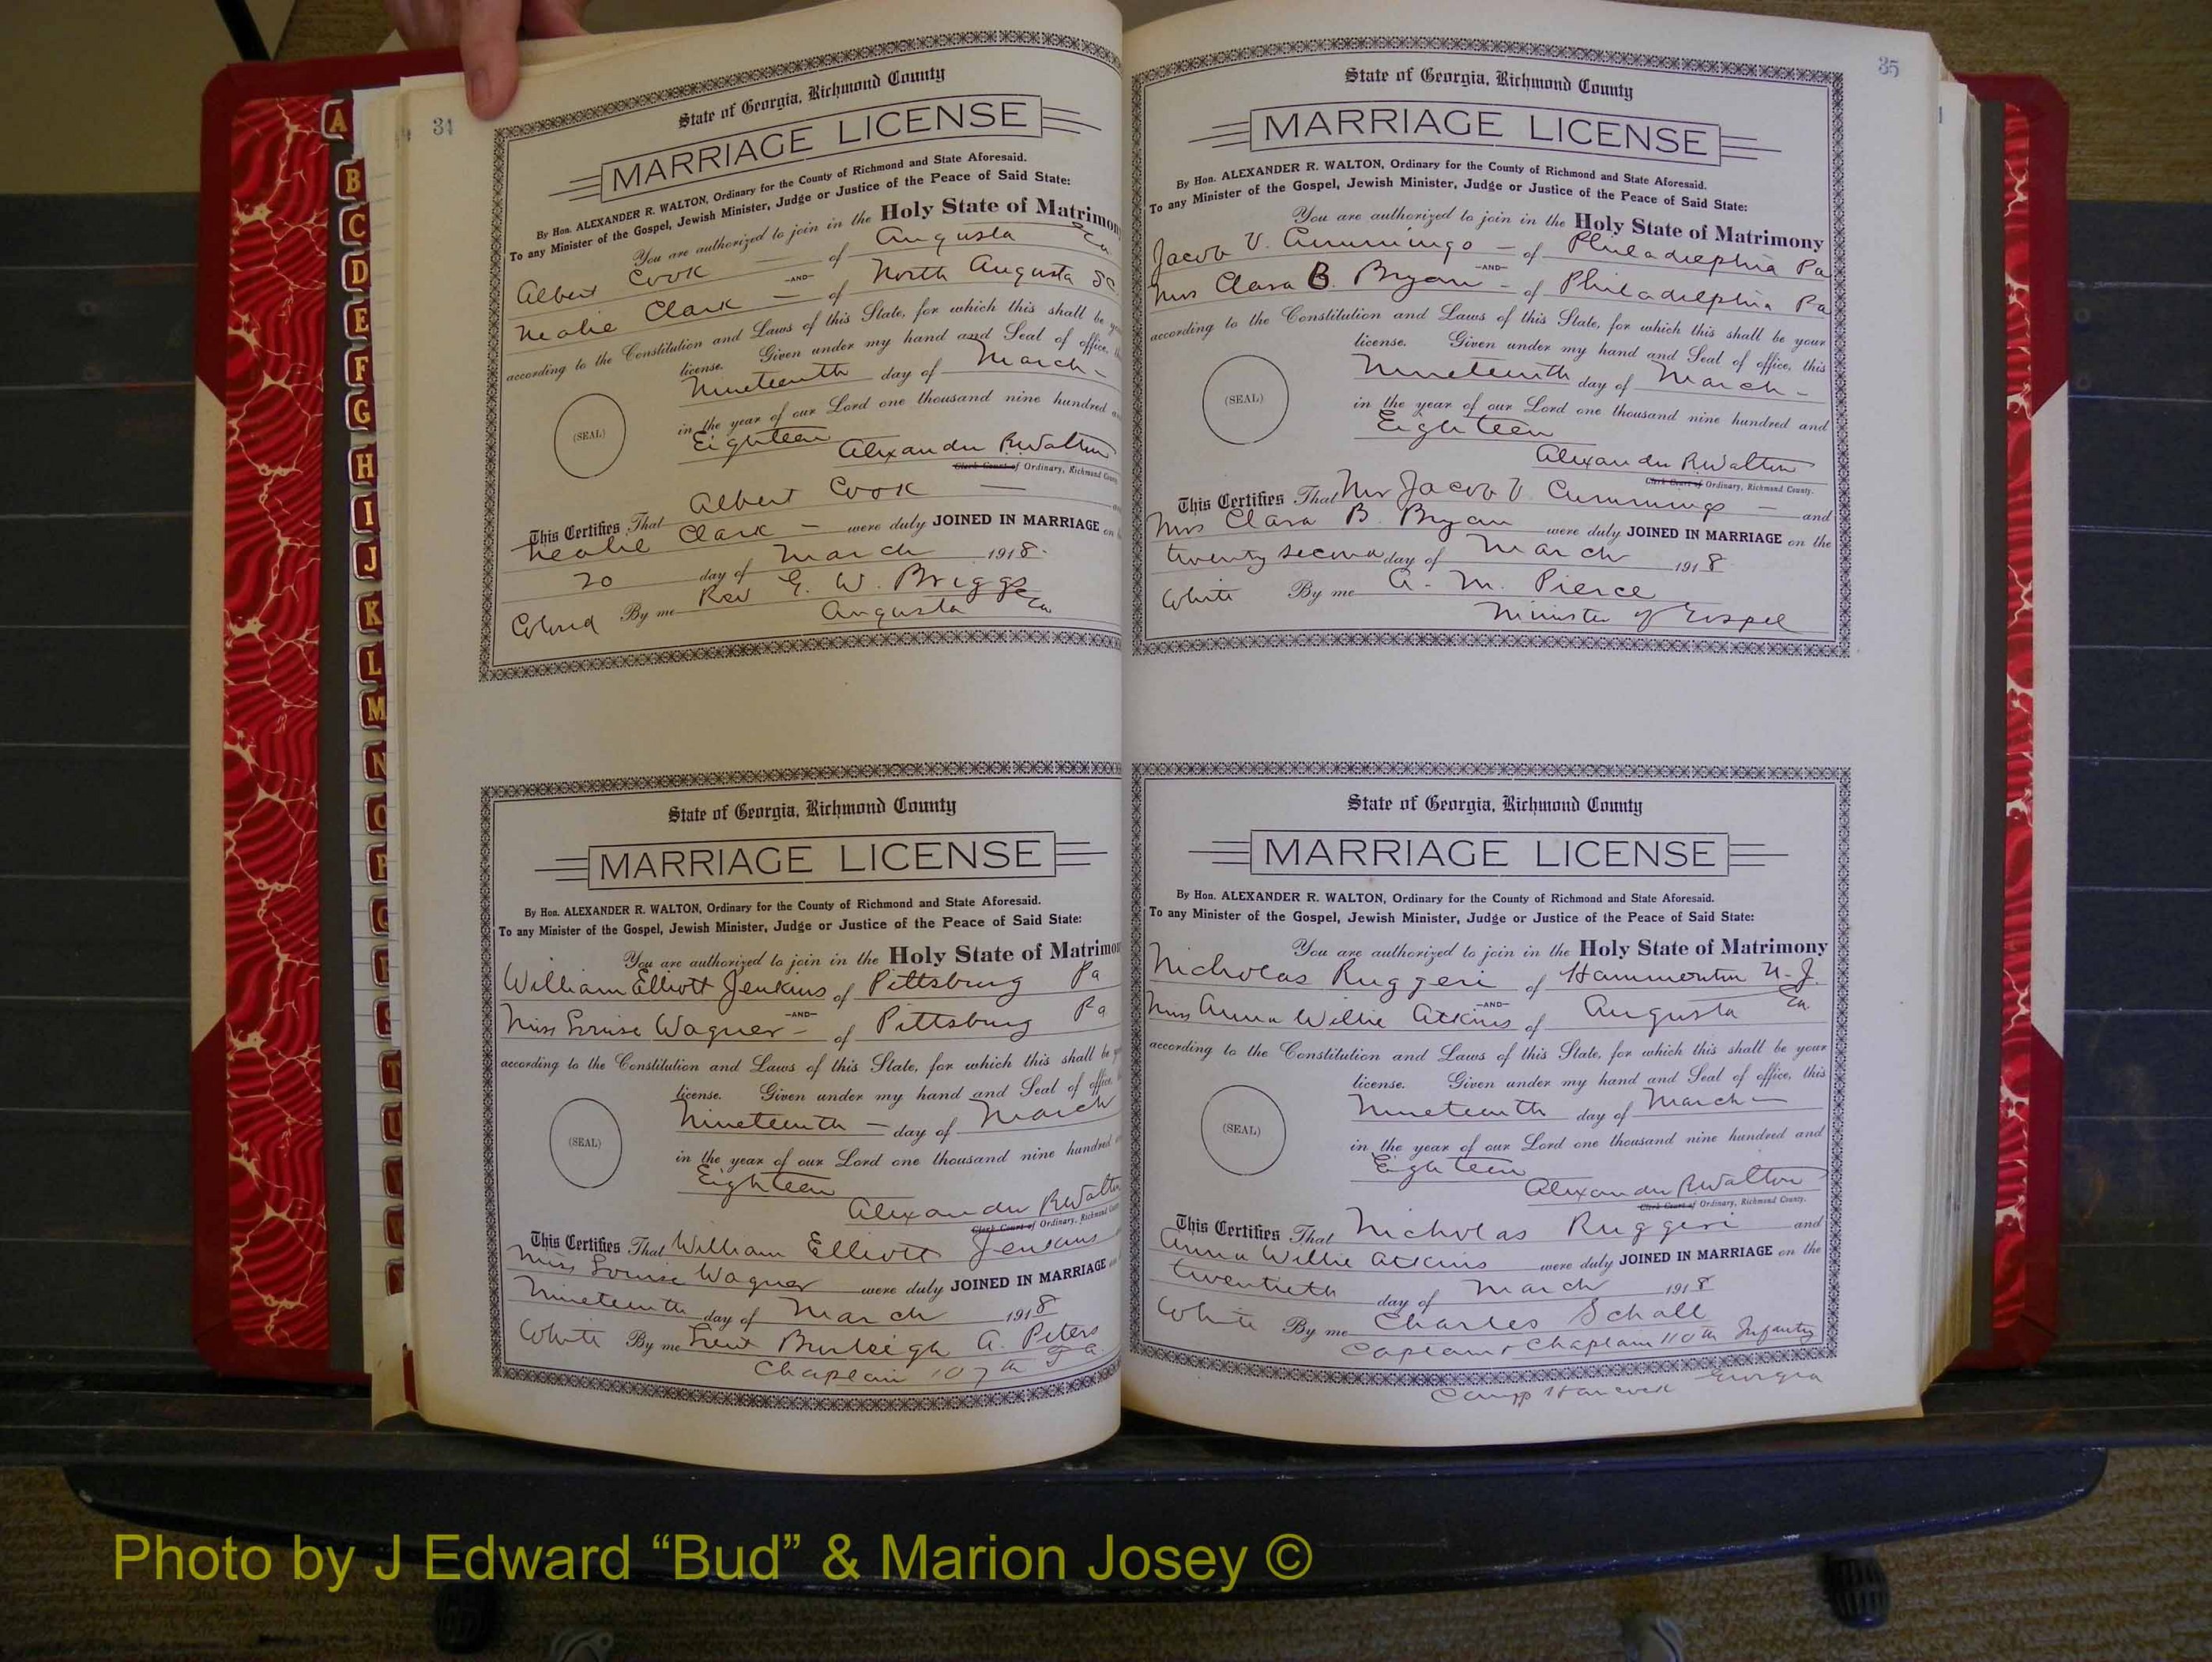 A
B
C
D
E
F
G
H
I
J
K
L
M
N
O
P
Q
R
S
T
U
V
W
34
State of Georgia, Richmond County
MARRIAGE LICENSE
By Hon. ALEXANDER R. WALTON, Ordinary for the County of Richmond and State Aforesaid.
To any Minister of the Gospel, Jewish Minister, Judge or Justice of the Peace of Said State:
You are authorized to join in the Holy State of Matrimony
Albert Cook — of Augusta Ga
-AND-
Nealie Clark — of North Augusta SC
according to the Constitution and Laws of this State, for which this shall be
license. Given under my hand and Seal of office,
Nineteenth day of March -
in the year of our Lord one thousand nine hundred
Eighteen
(SEAL)
Alexander R Walton
Clerk Court of Ordinary, Richmond County
This Certifies That Albert Cook —
Nealie Clark — were duly JOINED IN MARRIAGE on
20 day of March 1918.
Colored By me Rev G. W. Briggs
Augusta Ga
State of Georgia, Richmond County
MARRIAGE LICENSE
By Hon. ALEXANDER R. WALTON, Ordinary for the County of Richmond and State Aforesaid.
To any Minister of the Gospel, Jewish Minister, Judge or Justice of the Peace of Said State:
You are authorized to join in the Holy State of Matrimony
William Elliott Jenkins of Pittsburg Pa
-AND-
Miss Louise Wagner - of Pittsburg Pa
according to the Constitution and Laws of this State, for which this shall be
license. Given under my hand and Seal of office,
Nineteenth — day of March
in the year of our Lord one thousand nine hundred
Eighteen
(SEAL)
Alexander R Walton
Clerk Court of Ordinary, Richmond
This Certifies That William Elliott Jenkins
Miss Louise Wagner were duly JOINED IN MARRIAGE
Nineteenth day of March 1918
White By me Lieut Burleigh A. Peters
Chaplain 107th F A.
35
State of Georgia, Richmond County
MARRIAGE LICENSE
By Hon. ALEXANDER R. WALTON, Ordinary for the County of Richmond and State Aforesaid.
To any Minister of the Gospel, Jewish Minister, Judge or Justice of the Peace of Said State:
You are authorized to join in the Holy State of Matrimony
Jacob V. Cummings — of Philadelphia Pa
-AND-
Mrs Clara B. Bryan - of Philadelphia Pa
according to the Constitution and Laws of this State, for which this shall be your
license. Given under my hand and Seal of office, this
Nineteenth day of March -
in the year of our Lord one thousand nine hundred and
Eighteen
(SEAL)
Alexander R Walton
Clerk Court of Ordinary, Richmond County.
This Certifies That Mr Jacob V Cummings — and
Mrs Clara B. Bryan were duly JOINED IN MARRIAGE on the
twenty second day of March 1918
White By me A. M. Pierce
Minister of Gospel
State of Georgia, Richmond County
MARRIAGE LICENSE
By Hon. ALEXANDER R. WALTON, Ordinary for the County of Richmond and State Aforesaid.
To any Minister of the Gospel, Jewish Minister, Judge or Justice of the Peace of Said State:
You are authorized to join in the Holy State of Matrimony
Nicholas Ruggeri of Hammonton N.J.
-AND-
Miss Anna Willie Atkins of Augusta Ga.
according to the Constitution and Laws of this State, for which this shall be your
license. Given under my hand and Seal of office, this
Nineteenth day of March —
in the year of our Lord one thousand nine hundred and
Eighteen
(SEAL)
Alexander R Walton
Clerk Court of Ordinary, Richmond County.
This Certifies That Nicholas Ruggeri and
Anna Willie Atkins were duly JOINED IN MARRIAGE on the
twentieth day of March 1918
White By me Charles Schall
Captain & Chaplain 110th Infantry
Camp Hancock Georgia
Photo by J Edward “Bud” & Marion Josey ©